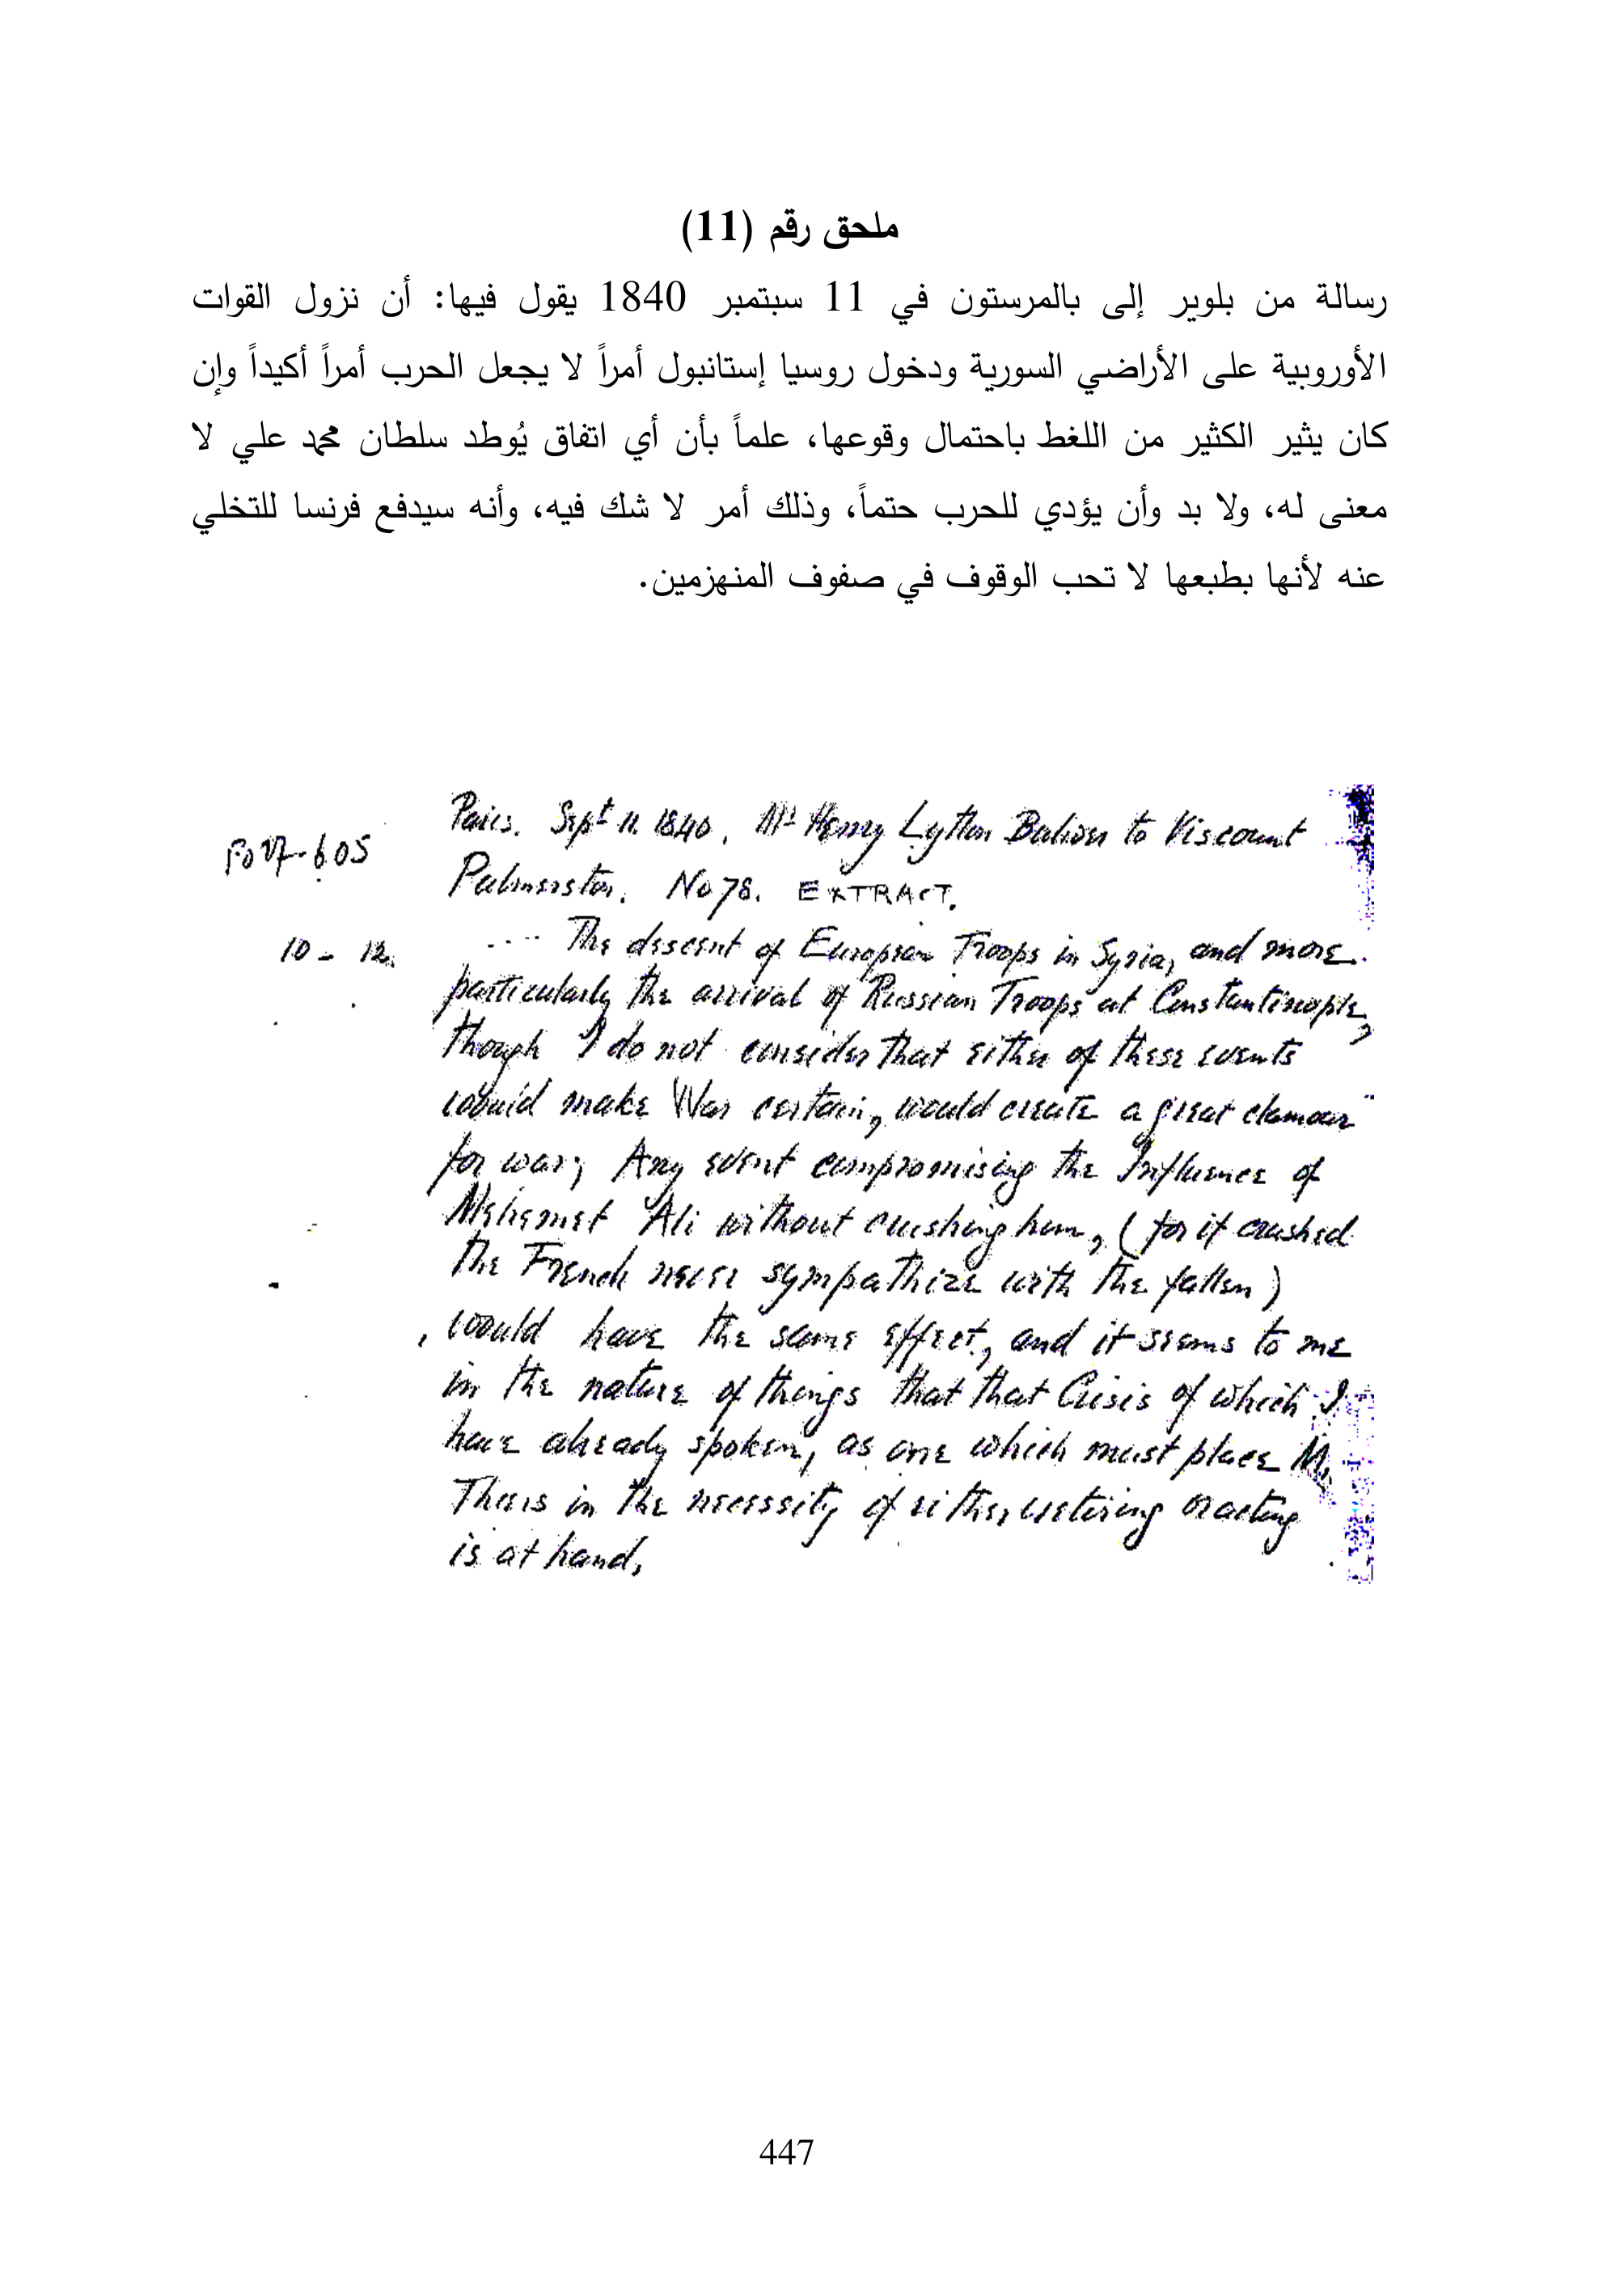 ملحق رقم (11)
رسالة من بلوير إلى بالمرستون في 11 سبتمبر 1840 يقول فيها: أن نزول القوات
الأوروبية على الأراضي السورية ودخول روسيا إستانبول أمراً لا يجعل الحرب أمراً أكيداً وإن
كان يثير الكثير من اللغط باحتمال وقوعها، علماً بأن أي اتفاق يُوطد سلطان محمد علي لا
معنى له، ولا بد وأن يؤدي للحرب حتماً، وذلك أمر لا شك فيه، وأنه سيدفع فرنسا للتخلي
عنه لأنها بطبعها لا تحب الوقوف في صفوف المنهزمين.
Paris. Sept 11. 1840. Mr Henry Lytton Bulwer to Viscount
FO 27-605
Palmerston. No 78. EXTRACT.
10 - 12.
.... The descent of European Troops in Syria, and more
particularly the arrival of Russian Troops at Constantinople,
though I do not consider that either of these events
would make War certain, would create a great clamour
for war; Any event compromising the Influence of
Mehemet Ali without crushing him, (for if crushed
the French never sympathize with the fallen)
would have the same effect, and it seems to me
in the nature of things that that Crisis of which I
have already spoken, as one which must place M.
Thiers in the necessity of either retiring or acting
is at hand,
447